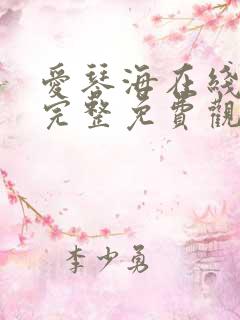 愛琴海在綫
完整免費觀
李少勇